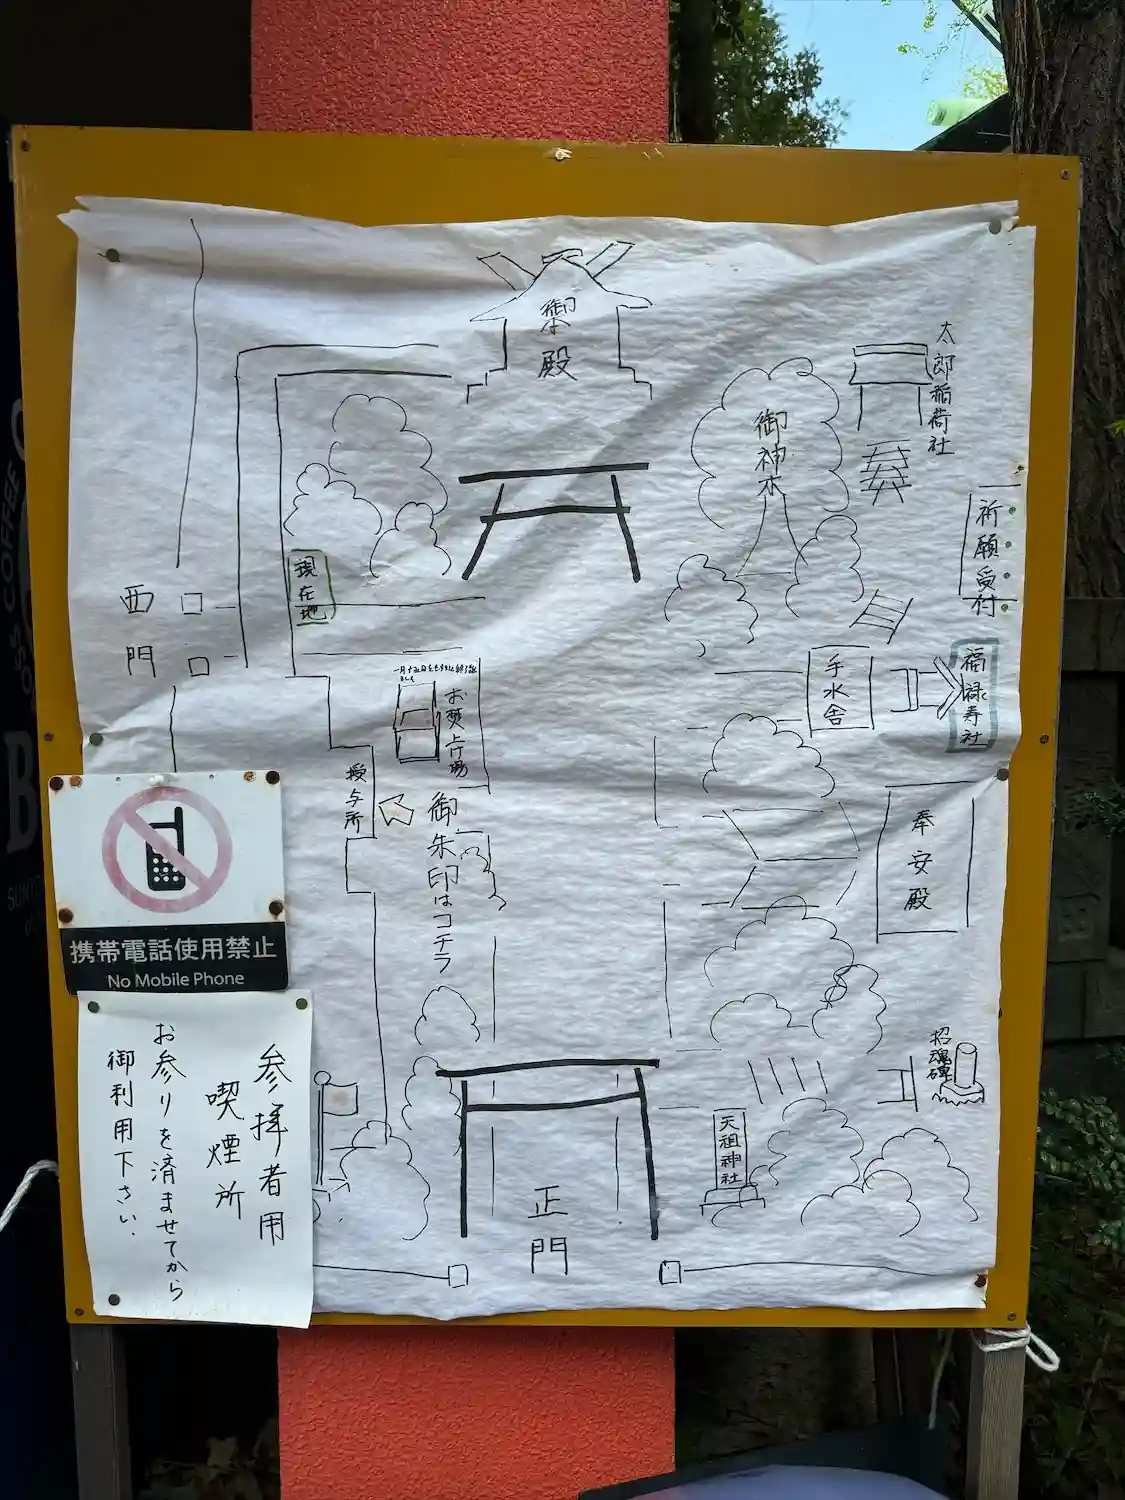 御殿
太郎稲荷社
御神木
祈願受付
現在地
西門
福禄寿社
手水舎
お焚上げ場
授与所
御朱印はコチラ
奉安殿
招魂碑
天祖神社
正門
携帯電話使用禁止
No Mobile Phone
参拝者用
喫煙所
お参りを済ませてから
御利用下さい。
COFFEE